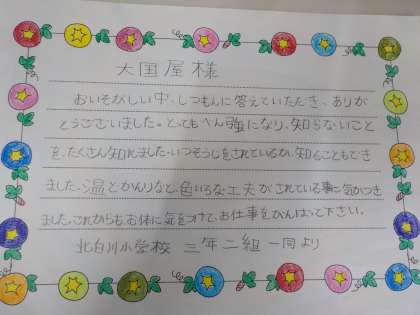 大国屋様
おいそがしい中、しつもんに答えていただき、ありが
とうございました。とってもべん強になり、知らないこと
を、たくさん知れました。いつそうじをされているか、知ることもでき
ました。温とかんりなど、色いろな工夫がされている事に気がつき
ました。これからも、お体に気をつけて、お仕事をがんばって下さい。
北白川小学校 三年二組 一同より